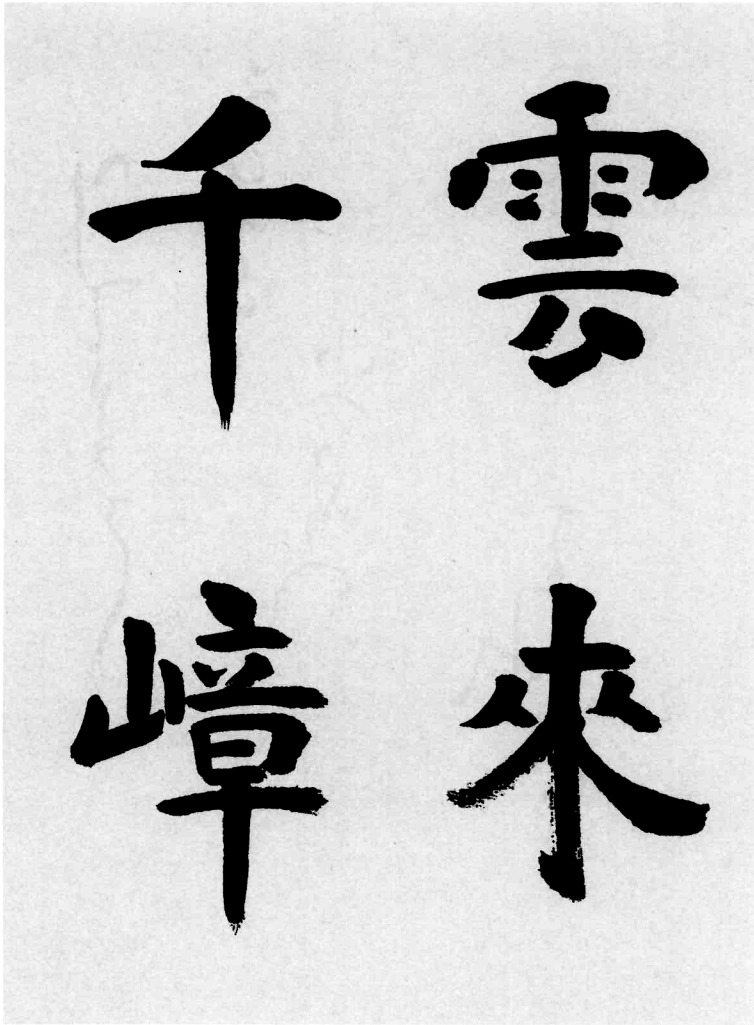 雲來
千嶂